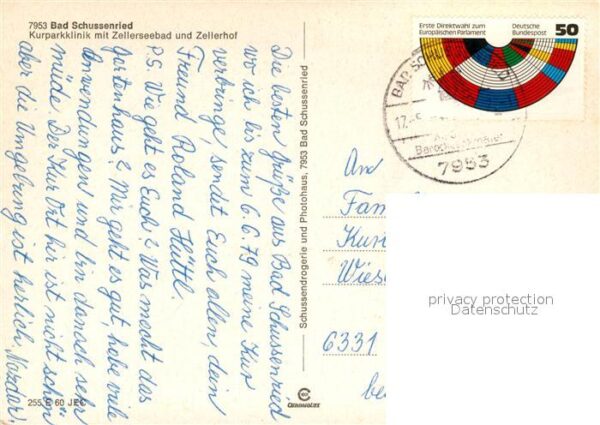 7953 Bad Schussenried
Kurparkklinik mit Zellerseebad und Zellerhof
Erste Direktwahl zum
Europäischen Parlament
Deutsche
Bundespost
50
BAD SC
17.-5.
Barock
7953
Die besten Grüße aus Bad Schussenried
wo ich bis zum 6.6.79 meine Kur
verbringe, sendet Euch allen, dein
Freund Roland Hüttl.
P.S. Wie geht es Euch? Was macht das
Gartenhaus? Mir geht es gut, habe viele
Anwendungen und bin danach sehr
müde. Der Kur Ort hir ist nicht schön
aber die Umgebung ist herlich, Nazdar!
Schussendrogerie und Photohaus, 7953 Bad Schussenried
An
Fam
Kur
Wies
6331
be
privacy protection
Datenschutz
255 60 JEC